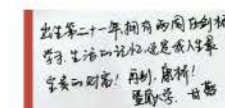 出生第二十一年,拥有两周在剑桥
学习、生活的记忆,这是我人生最
宝贵的财富!再到,康桥!